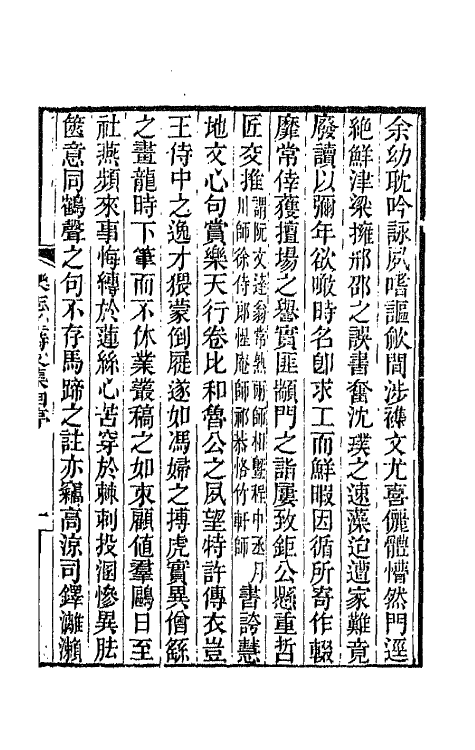 余幼耽吟詠夙嗜謳歈間涉襍文尤喜儷體懵然門逕
絕鮮津梁擁邢邵之誤書奮沈璞之速藻迨遭家難竟
廢讀以彌年欲噉時名卽求工而鮮暇因循所寄作輟
靡常倖獲擅塲之譽實匪顓門之詣屢致鉅公懸重哲
匠交推謂阮文達翁常熟兩師柏㙺程中丞月川師徐侍郎惺庵師祁恭恪竹軒師書誇慧
地文心句賞樂天行卷比和魯公之夙望特許傳衣豈
王侍中之逸才猥蒙倒屣遂如馮婦之搏虎實異僧繇
之畫龍時下筆而不休業叢稿之如束顧値羣鷗日至
社燕頻來事悔縛於蓮絲心苦穿於棘刺投溷慘異胠
篋意同鶴聲之句不存馬蹄之註亦竊高涼司鐸濉瀨
樂志 集 序
一